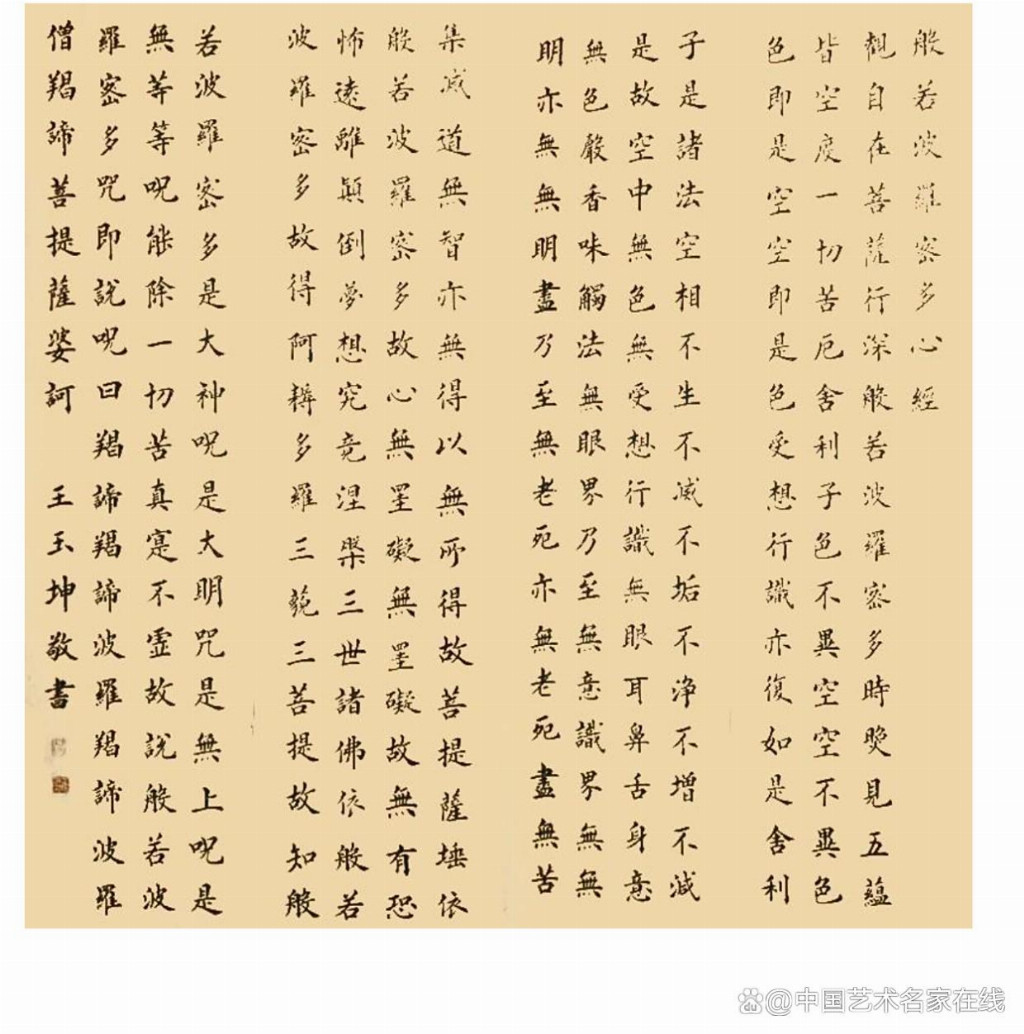 般若波羅密多心經
觀自在菩薩行深般若波羅密多時見五蘊
皆空度一切苦厄舍利子色不異空空不異色
色即是空空即是色受想行識亦復如是舍利
子是諸法空相不生不滅不垢不淨不增不減
是故空中無色無受想行識無眼耳鼻舌身意
無色嚴香味觸法無眼界乃至無意識界無無
明亦無無明盡乃至無老死亦無老死盡無苦
集滅道無智亦無得以無所得故菩提薩埵依
般若波羅密多故心無罣礙無罣礙故無有恐
怖遠離顛倒夢想究竟涅槃三世諸佛依般若
波羅密多故得阿耨多羅三藐三菩提故知般
若波羅密多是大神呪是大明咒是無上呪是
無等等呪能除一切苦真寔不虛故說般若波
羅密多咒即說呪曰羯諦羯諦波羅羯諦波羅
僧羯諦菩提薩婆訶 王玉坤敬書
@中国艺术名家在线